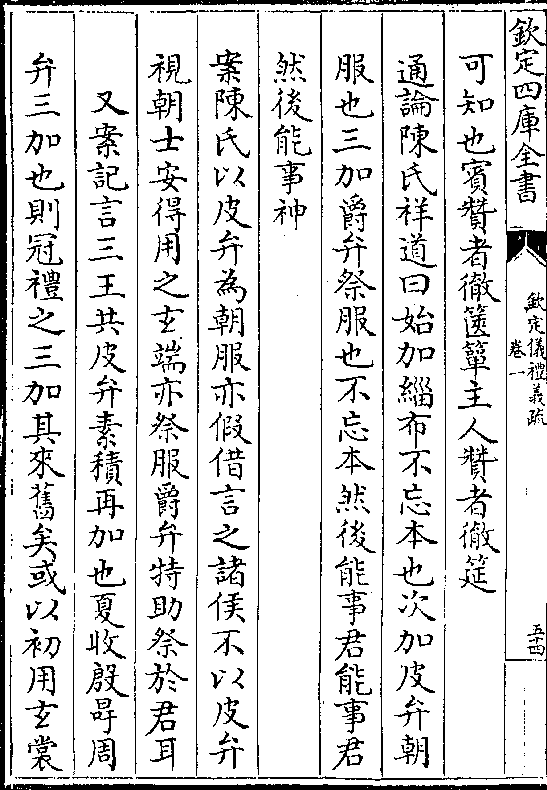 欽定四庫全書
欽定儀禮義疏
卷一
五十四
可知也賓贊者徹篋簞主人贊者徹筵
通論陳氏祥道曰始加緇布不忘本也次加皮弁朝
服也三加爵弁祭服也不忘本然後能事君能事君
然後能事神
案陳氏以皮弁為朝服亦假借言之諸侯不以皮弁
視朝士安得用之玄端亦祭服爵弁特助祭於君耳
又案記言三王共皮弁素積再加也夏收殷冔周
弁三加也則冠禮之三加其來舊矣或以初用玄裳